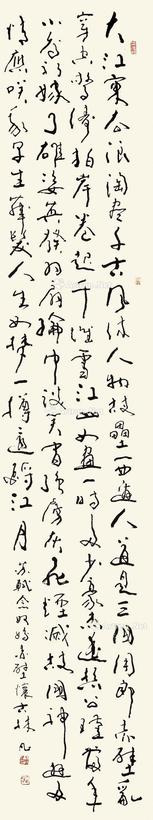 大江東去浪淘盡千古風流人物故壘西邊人道是三國周郎赤壁亂
穿空驚濤拍岸卷起千堆雪江山如畫一時多少豪杰遥想公瑾當年
小喬初嫁了雄姿英發羽扇綸巾談笑間强虜灰飛煙滅故國神遊多
情應笑我早生華髮人生如夢一樽還酹江月
蘇軾念奴嬌赤壁懷古 林凡